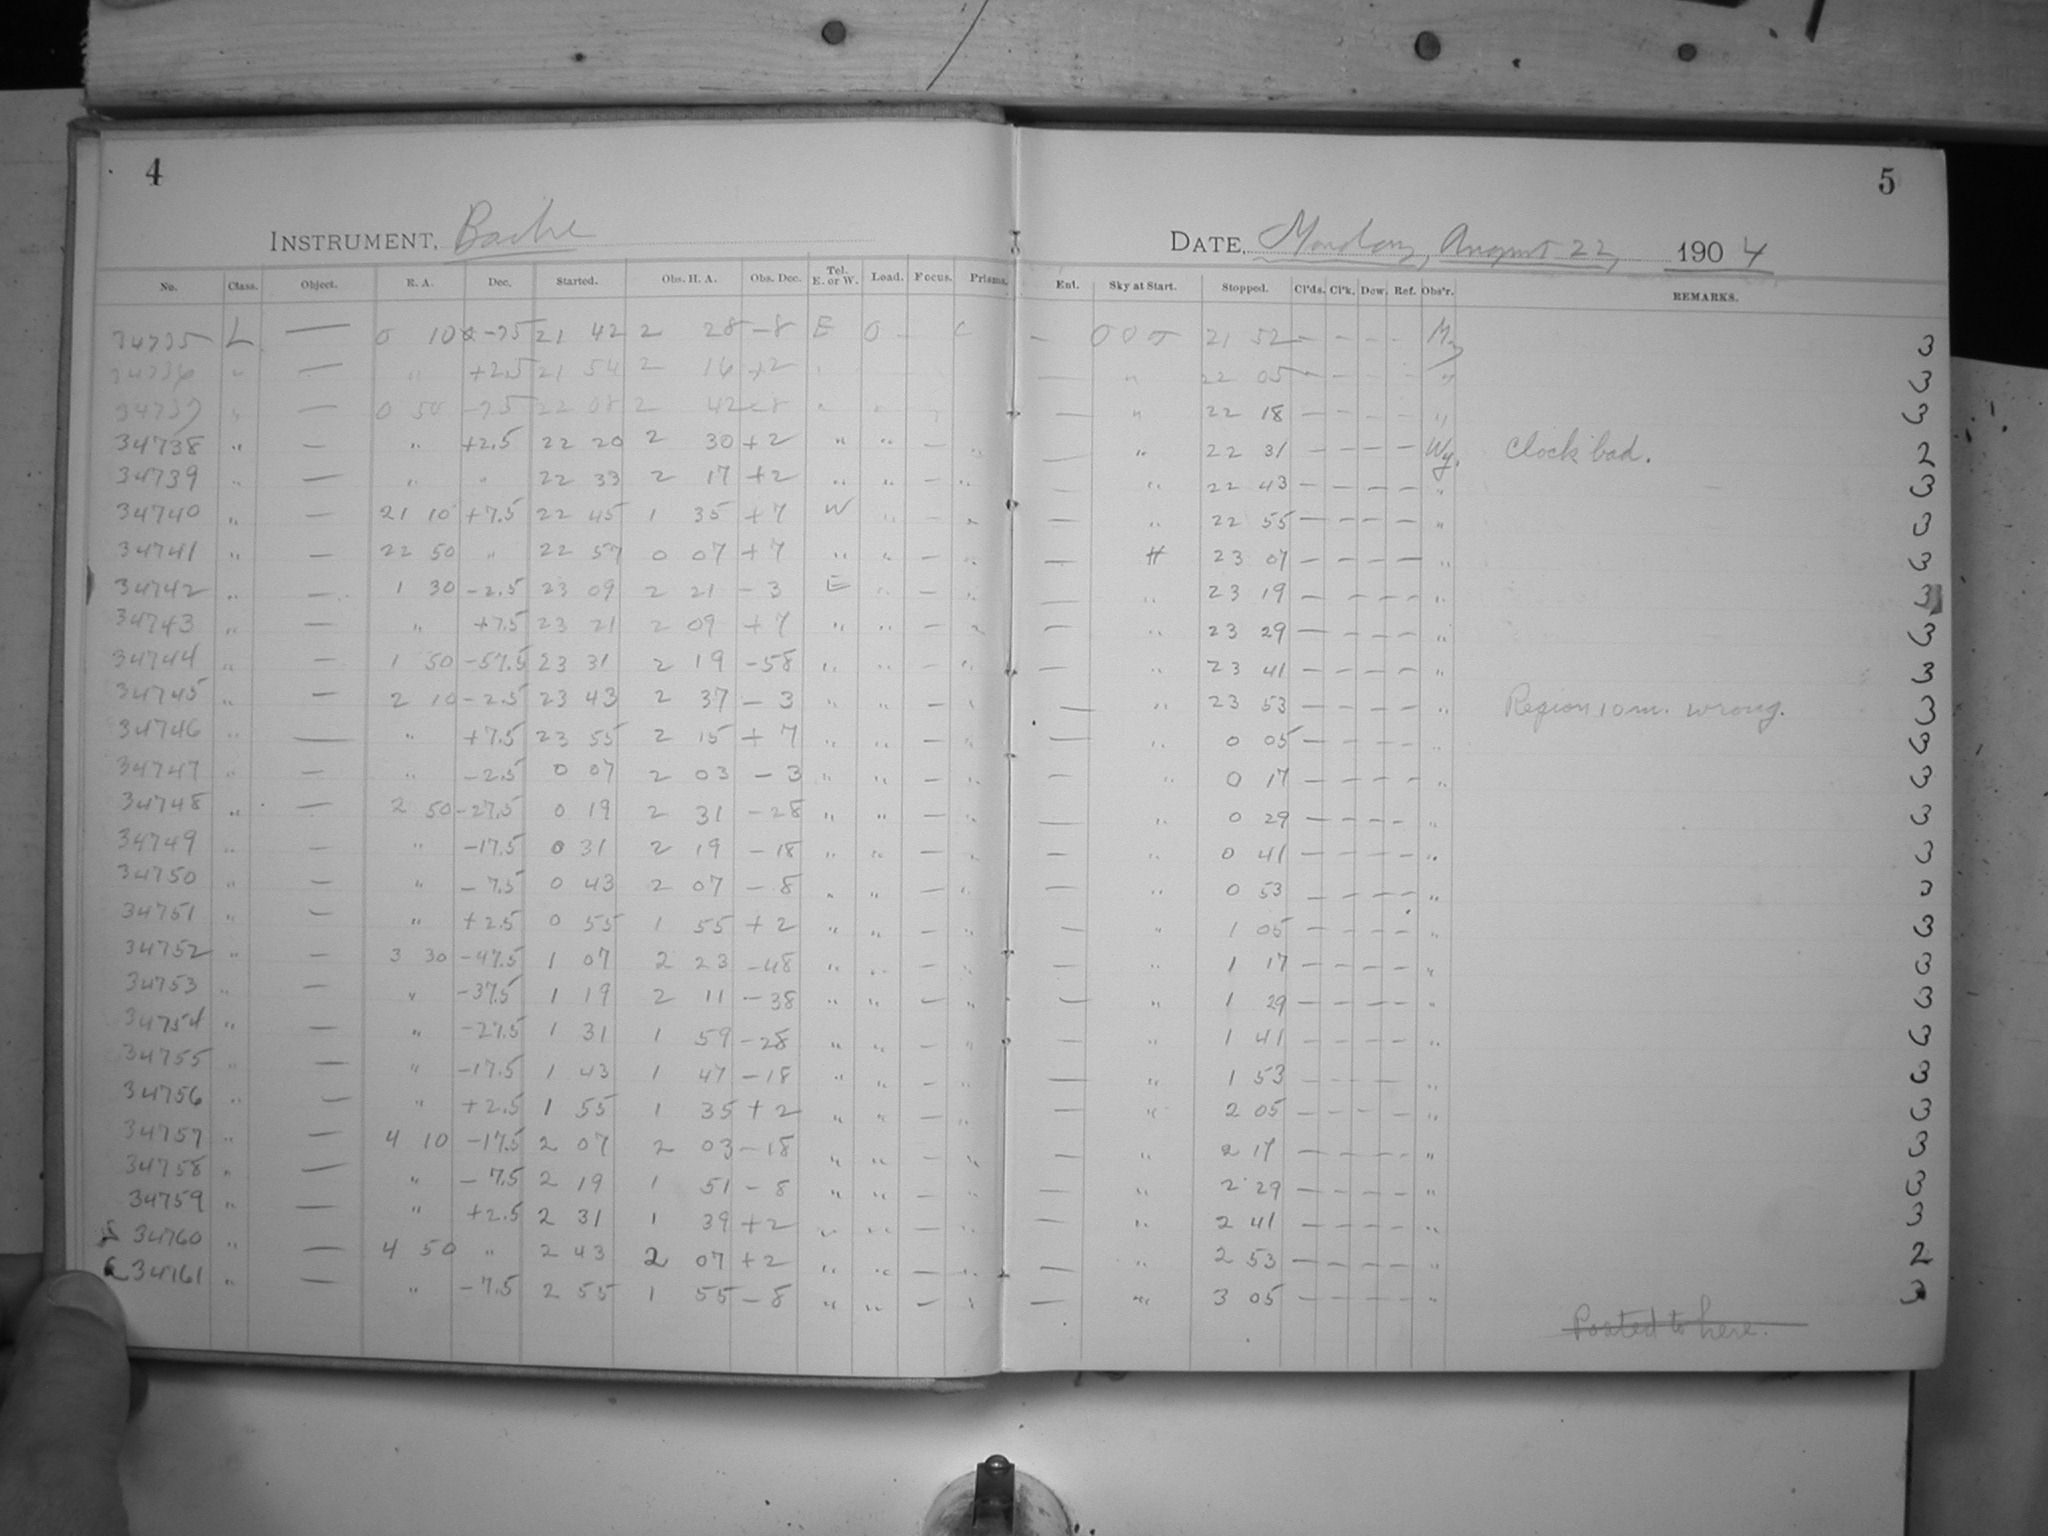 4
5
INSTRUMENT, Bache
DATE, Monday, August 22, 1904
No. Class. Object. R. A. Dec. Started. Obs. H. A. Obs. Dec. Tel. E. or W. Load. Focus. Prisms. Ent. Sky at Start. Stopped. Cl'ds. Cl'k. Dew. Ref. Obs'r. REMARKS.
34735 L — 0 10 -75 21 42 2 28 -8 E 0 — C — 000 21 52 — — — — 3
34736 " — " +2.5 21 54 2 16 +2 " — " 22 05 — — — — " 3
34737 " — 0 50 -7.5 22 08 2 42 -8 " " — " 22 18 — — — — " 3
34738 " — " +2.5 22 20 2 30 +2 " " — " — " 22 31 — — — — Wy. Clock bad. 2
34739 " — " " 22 33 2 17 +2 " " — " — " 22 43 — — — — " 3
34740 " — 21 10 +7.5 22 45 1 35 +7 W " — " — " 22 55 — — — — " 3
34741 " — 22 50 " 22 57 0 07 +7 " " — " — H 23 07 — — — — " 3
34742 " — 1 30 -2.5 23 09 2 21 -3 E " — " — " 23 19 — — — — " 3
34743 " — " +7.5 23 21 2 09 +7 " " — " — " 23 29 — — — — " 3
34744 " — 1 50 -57.5 23 31 2 19 -58 " " — " — " 23 41 — — — — " 3
34745 " — 2 10 -2.5 23 43 2 37 -3 " " — " — " 23 53 — — — — " Region 10m. wrong. 3
34746 " — " +7.5 23 55 2 15 +7 " " — " — " 0 05 — — — — " 3
34747 " — " -2.5 0 07 2 03 -3 " " — " — " 0 17 — — — — " 3
34748 " — 2 50 -27.5 0 19 2 31 -28 " " — " — " 0 29 — — — — " 3
34749 " — " -17.5 0 31 2 19 -18 " " — " — " 0 41 — — — — " 3
34750 " — " -7.5 0 43 2 07 -8 " " — " — " 0 53 — — — — " 3
34751 " — " +2.5 0 55 1 55 +2 " " — " — " 1 05 — — — — " 3
34752 " — 3 30 -47.5 1 07 2 23 -48 " " — " — " 1 17 — — — — " 3
34753 " — " -37.5 1 19 2 11 -38 " " — " — " 1 29 — — — — " 3
34754 " — " -27.5 1 31 1 59 -28 " " — " — " 1 41 — — — — " 3
34755 " — " -17.5 1 43 1 47 -18 " " — " — " 1 53 — — — — " 3
34756 " — " +2.5 1 55 1 35 +2 " " — " — " 2 05 — — — — " 3
34757 " — 4 10 -17.5 2 07 2 03 -18 " " — " — " 2 17 — — — — " 3
34758 " — " -7.5 2 19 1 51 -8 " " — " — " 2 29 — — — — " 3
34759 " — " +2.5 2 31 1 39 +2 " " — " — " 2 41 — — — — " 3
34760 " — 4 50 " 2 43 2 07 +2 " " — " — " 2 53 — — — — " 2
34761 " — " -7.5 2 55 1 55 -8 " " — " — " 3 05 — — — — " 3
Posted to here.